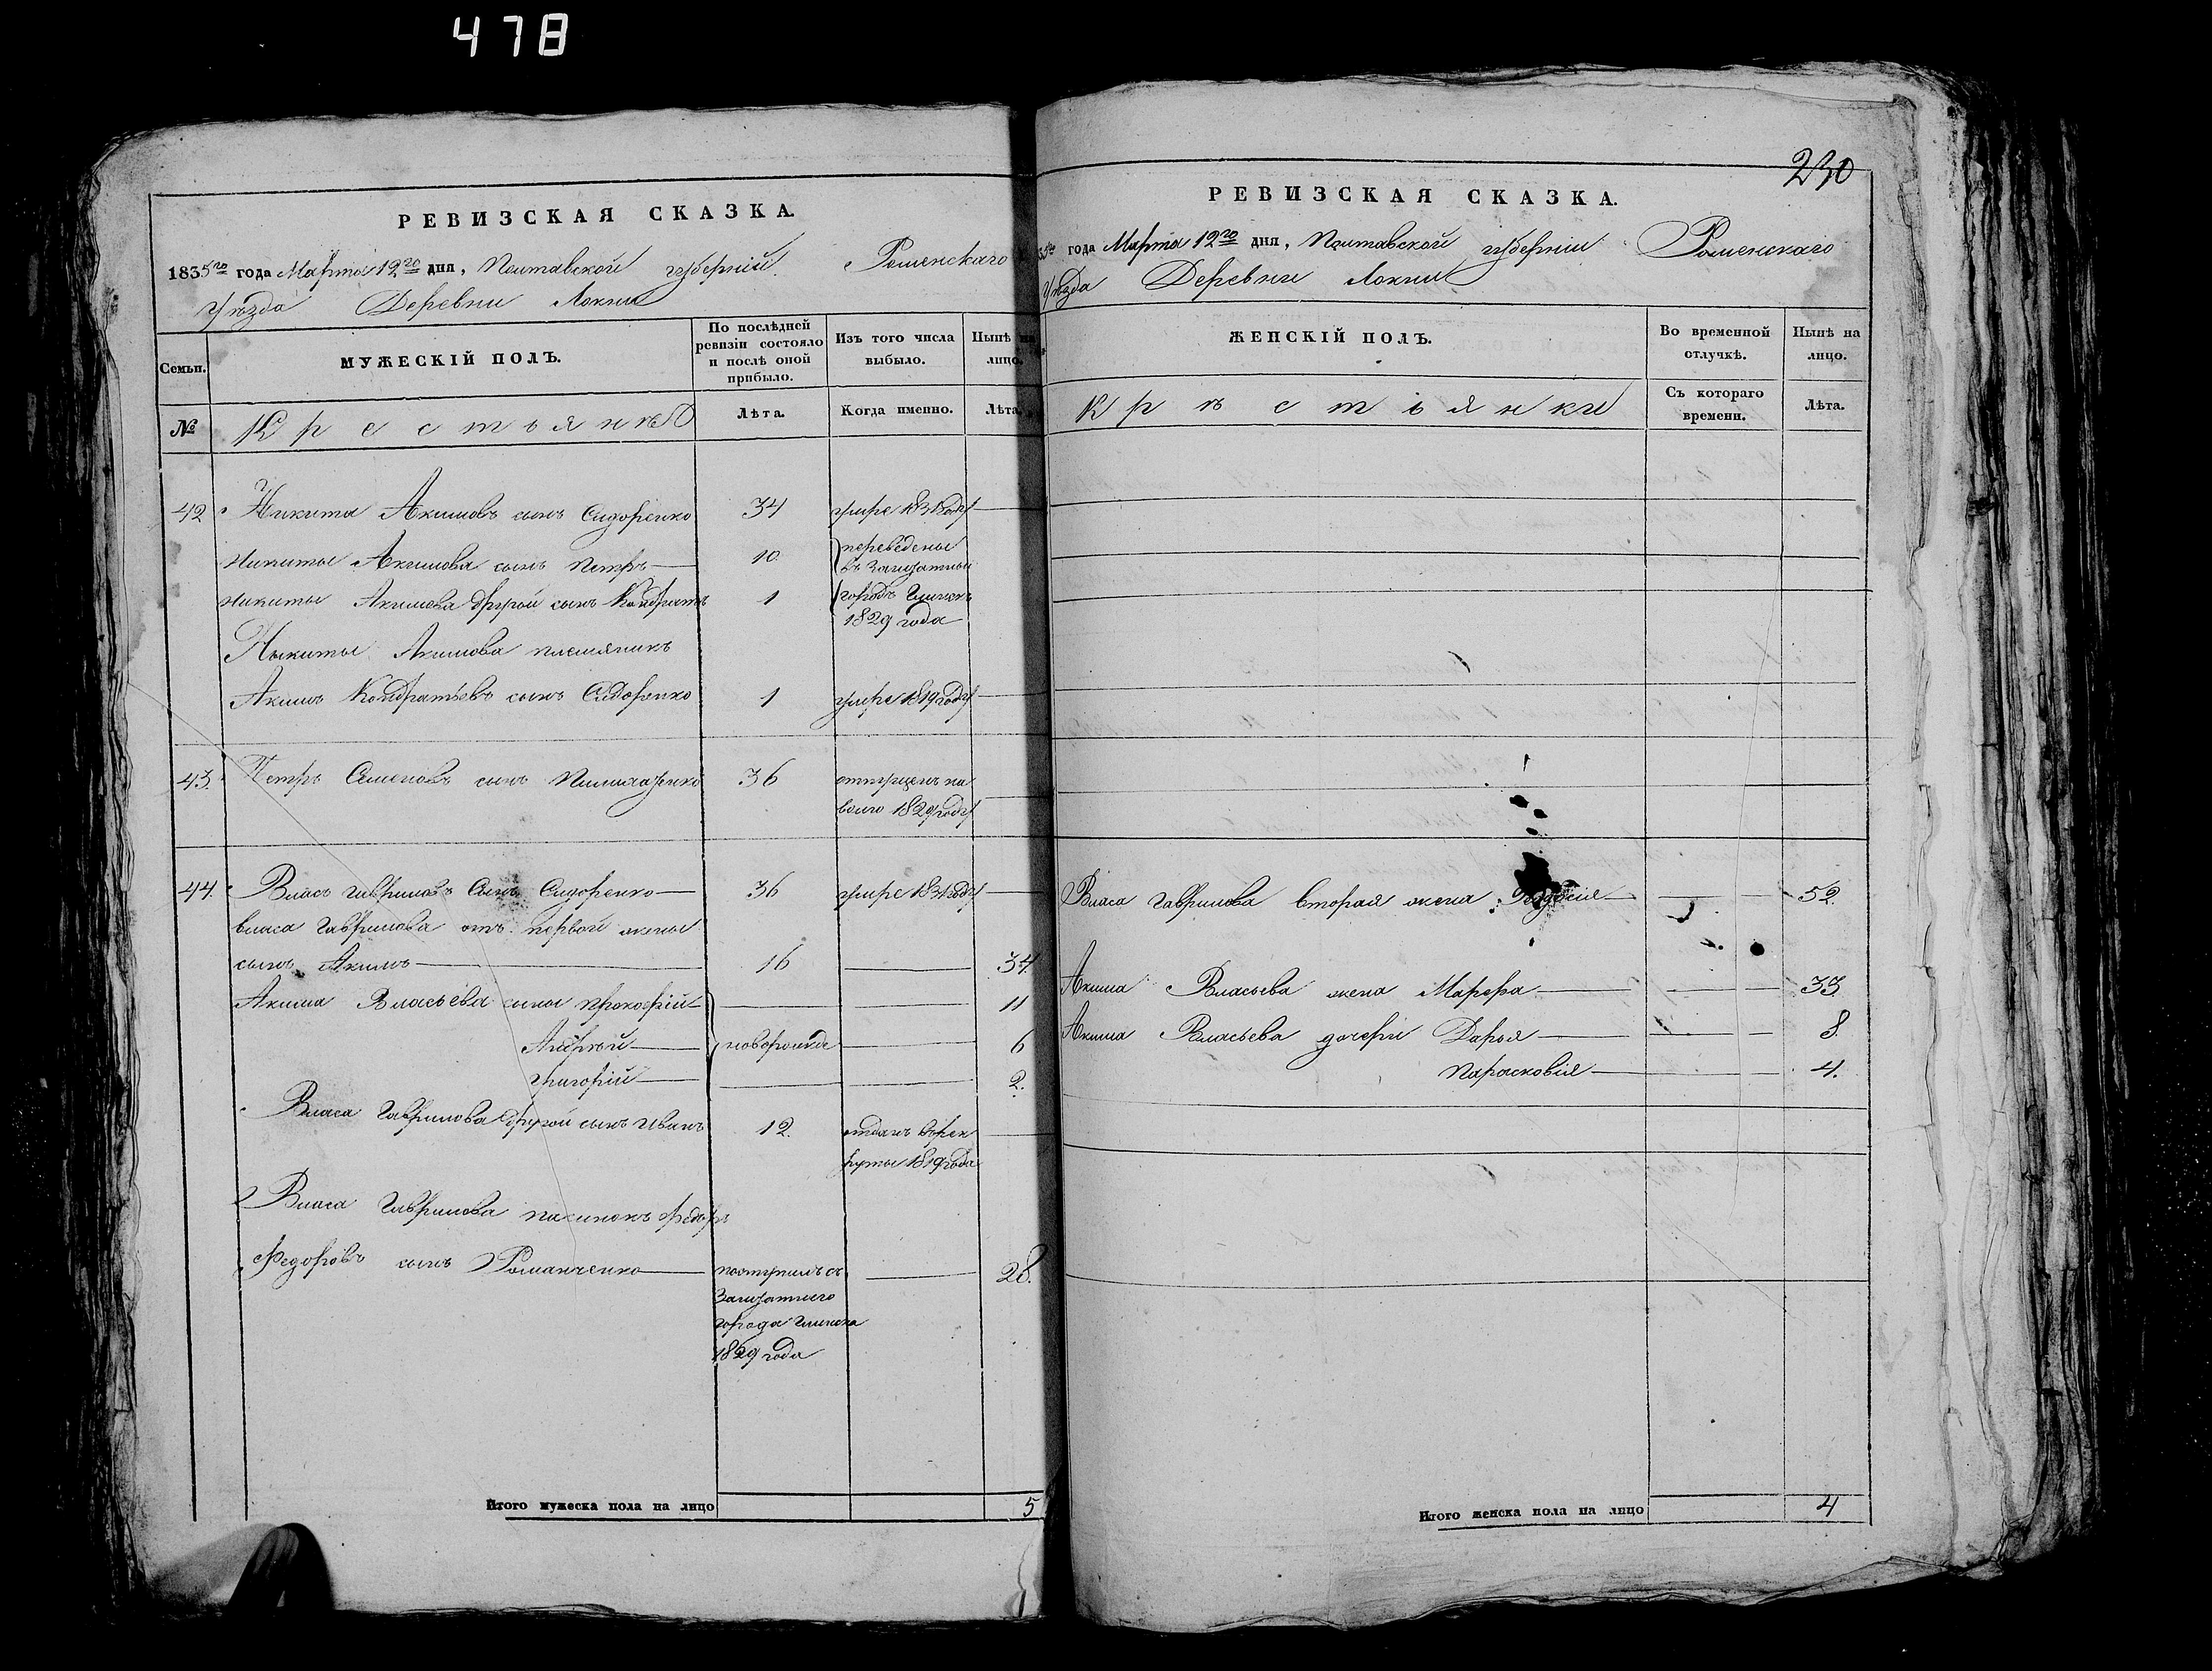 478
РЕВИЗСКАЯ СКАЗКА.
1835го года Марта 12го дня, Полтавской губернии Роменскаго
Уезда Деревни Локни
Семьи.
МУЖЕСКІЙ ПОЛЪ.
По послѣдней ревизіи состояло и послѣ оной прибыло.
Изъ того числа выбыло.
Нынѣ на лицо.
№
Крестьянѣ
Лѣта.
Когда именно.
Лѣта.
42 Никита Акимовъ сынъ Сидоренко 34 умре 1831 году
Никиты Акимова сынъ Петръ 10 переведены въ Заштатный
Никиты Акимова другой сынъ Кондратъ 1 городъ Глинскъ
1829 года
Никиты Акимова племяникъ
Акимъ Кондратьевъ сынъ Сидоренко 1 умре 1819 году
43. Петръ Семеновъ сынъ 36 отпущенъ на
волю 1829 году
44. Власъ Гавриловъ сынъ Сидоренко 36 умре 1831 году
Власа Гаврилова отъ первой жены
сынъ Акимъ 16 34.
Акима Власьева сыны Прокофій 11
Андрей новорожде 6
Григорій 2.
Власа Гаврилова другой сынъ Иванъ 12. отданъ врек
руты 1819 года
Власа Гаврилова пасинокъ Федоръ
Федоровъ сынъ Романченко поступилъ съ 28.
Заштатного
города Глинска
1829 года
Итого мужеска пола на лицо 5
230
РЕВИЗСКАЯ СКАЗКА.
35го года Марта 12го дня, Полтавской губерніи Роменскаго
Уѣзда Деревни Локни
ЖЕНСКІЙ ПОЛЪ.
Во временной отлучкѣ.
Нынѣ на лицо.
Крѣстіянки
Съ котораго времени.
Лѣта.
Власа Гаврилова вторая жена 52.
Акима Власьева жена Марфа 33
Акима Власьева дочери Дарья 8.
Парасковія 4.
Итого женска пола на лицо 4